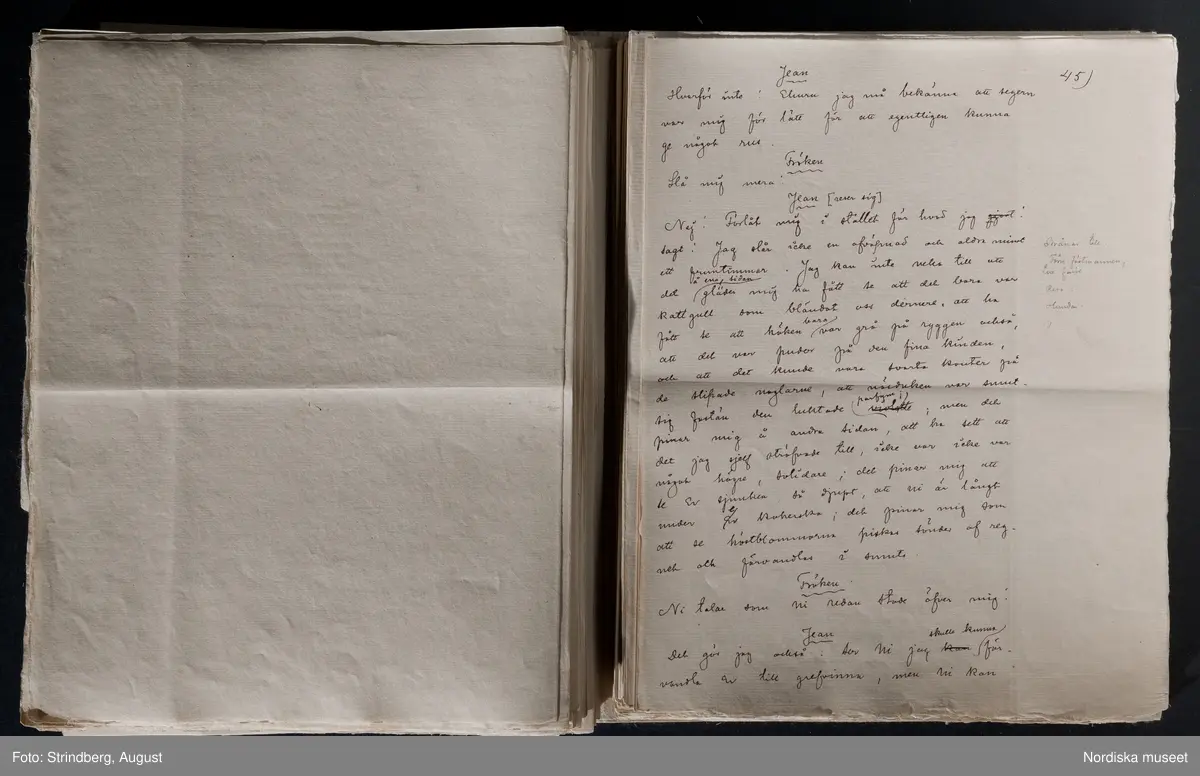 45)
Jean
Hvarför inte! Ehuru jag må bekänna att segern
var mig för lätt för att egentligen kunna
ge något rus.
Fröken
Slå mig mera!
Jean [reser sig]
Nej! Förlåt mig i stället för hvad jag gjort!
sagt! Jag slår icke en afväpnad och aldra minst
ett fruntimmer. Jag kan inte neka till att
å ena sidan
det gläder mig ha fått se att det bara var
kattgull som bländat oss dernere, att ha
bara
fått se att höken var grå på ryggen också,
att det var puder på den fina kinden,
och att det kunde vara svarta kanter på
de slipade naglarne, att näsduken var smut-
parfym;
sig fastän den luktade; men det
pinar mig å andra sidan, att ha sett att
det jag sjelf sträfvade till, icke var icke var
något högre, solidare; det pinar mig att
se Er sjunken så djupt, att ni är långt
under Er kokerska; det pinar mig som
att se höstblommorna piskas sönder af reg-
net och förvandlas i smuts.
Fröken
Ni talar som ni redan stode öfver mig!
Jean
skulle kunna
Det gör jag också: ser Ni jag kan för-
vandla Er till grefvinna, men Ni kan
Foto: Strindberg, August
Nordiska museet